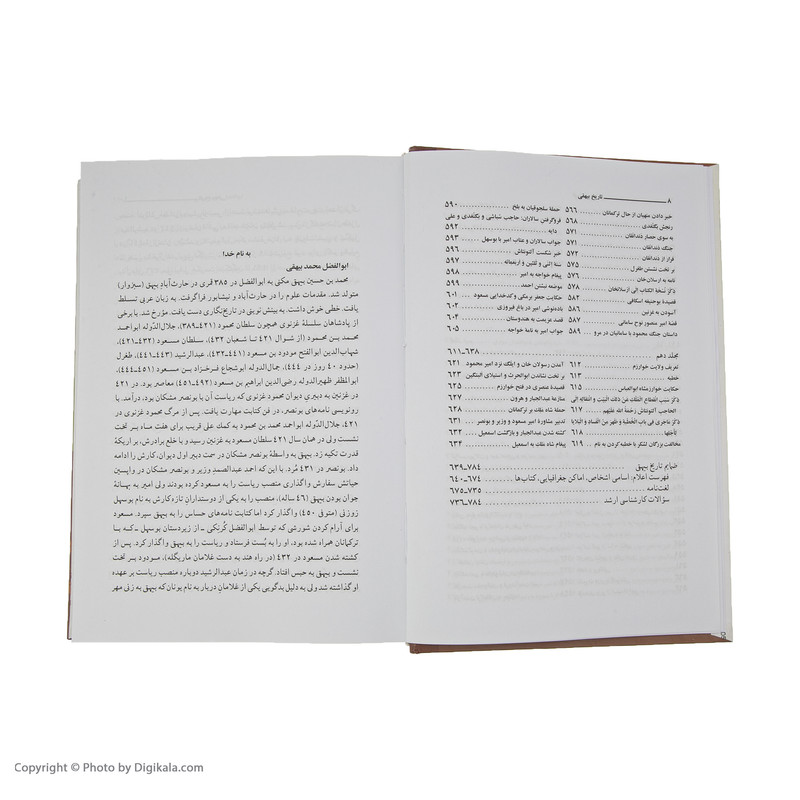 ۸ تاریخ بیهقی
خبر دادن منهیان از حال ترکمانان ۵۶۶
رنجش بگتغدی ۵۶۸
به سوی حصار دندانقان ۵۷۱
جنگ دندانقان ۵۷۱
فرار از دندانقان ۵۷۴
بر تخت نشستن طغرل ۵۷۶
نامه به ارسلان‌خان ۵۷۶
ذکر نسخة الکتاب الی ارسلانخان ۵۷۷
قصیدهٔ بوحنیفه اسکافی ۵۸۱
آسودن به غزنین ۵۸۷
قصهٔ امیر منصور نوح سامانی ۵۸۷
داستان جنگ محمود با سامانیان در مرو ۵۸۹
حملهٔ سلجوقیان به بلخ ۵۹۰
فروگرفتن سالاران: حاجب شباشی و بگتغدی و علی
دایه ۵۹۲
جواب سالاران و عتاب امیر با بوسهل ۵۹۳
خبر شکست آلتونتاش ۵۹۶
سنهٔ اثنی و ثلثین و اربعمائه ۵۹۷
پیغام خواجه به امیر ۵۹۸
موضعه نبشتن احمد ۵۹۹
حکایت جعفر برمکی و کدخدایی مسعود ۶۰۱
باده‌نوشی امیر در باغ فیروزی ۶۰۲
قصد عزیمت به هندوستان ۶۰۴
جواب امیر به نامهٔ خواجه ۶۰۵
مجلد دهم ۶۱۱-۶۳۸
تعریف ولایت خوارزم ۶۱۲
خطبه ۶۱۳
حکایت خوارزمشاه ابوالعباس ۶۱۵
ذکر سبب انقطاع الملک عن ذلک البیت و انتقاله الی
الحاجب آلتونتاش رحمة الله علیهم ۶۱۷
ذکر ماجری فی باب الخطبة و ظهر من الفساد و البلایا
لأجلها ۶۱۸
مخالفت بزرگان لشکر با خطبه کردن به نام ۶۱۹
آمدن رسولان خان و ایلک نزد امیر محمود ۶۲۱
بر تخت نشاندن ابوالحرث و استیلای البتگین ۶۲۳
قصیدهٔ عنصری در فتح خوارزم ۶۲۵
منازعهٔ عبدالجبار و هرون ۶۲۷
حملهٔ شاه ملک بر ترکمانان ۶۲۸
تدبیر مشاورهٔ امیر مسعود و وزیر و بونصر ۶۳۱
کشته شدن عبدالجبار و بازگشت اسمعیل ۶۳۲
پیغام شاه ملک به اسمعیل ۶۳۲
ضمایم تاریخ بیهق ۶۳۹-۷۸۴
فهرست اعلام: اسامی اشخاص، اماکن جغرافیایی، کتاب‌ها ۶۴۰-۶۷۴
لغت‌نامه ۶۷۵-۷۳۵
سؤالات کارشناسی ارشد ۷۳۶-۷۸۴
به نام خدا
ابوالفضل محمد بیهقی
محمد بن حسین بیهق مکنی به ابوالفضل در ۳۸۵ قمری در حارث‌آباد بیهق (سبزوار)
متولد شد. مقدمات علوم را در حارث‌آباد و نیشابور فراگرفت. به زبان عربی تسلط
یافت. خطی خوش داشت. به بینش نوینی در تاریخ‌نگاری دست یافت. مؤرخ شد. با برخی
از پادشاهان سلسلهٔ غزنوی همچون سلطان محمود (۳۸۹-۴۲۱)، جلال‌الدوله ابواحمد
محمد بن محمود (از شوال ۴۲۱ تا شعبان ۴۳۲)، سلطان مسعود (۴۲۱-۴۳۲)،
شهاب‌الدین ابوالفتح مودود بن مسعود (۴۳۲-۴۴۱)، عبدالرشید (۴۴۱-۴۴۴)، طغرل
(حدود ۴۰ روز در ۴۴۴)، جمال‌الدوله ابوشجاع فرخزاد بن مسعود (۴۴۴-۴۵۱)،
ابوالمظفر ظهیرالدوله رضی‌الدین ابراهیم بن مسعود (۴۵۱-۴۹۲) معاصر بود. در ۴۲۱
در غزنین به دبیری دیوان محمود غزنوی که ریاست آن با بونصر مشکان بود، درآمد. با
رونویسی نامه‌های بونصر، در فن کتابت مهارت یافت. پس از مرگ محمود غزنوی در
۴۲۱، جلال‌الدوله ابواحمد محمد بن محمود به کمک علی قریب برای هفت ماه بر تخت
نشست ولی در همان سال ۴۲۱ سلطان مسعود به غزنین رسید و با خلع برادرش، بر اریکهٔ
قدرت تکیه زد. بیهق به واسطهٔ بونصر مشکان در سمت دبیر اول دیوان، کارش را ادامه
داد. بونصر در ۴۳۱ مُرد. با این که احمد عبدالصمد وزیر و بونصر مشکان در واپسین
حیاتش سفارش واگذاری منصب ریاست را به مسعود کرده بودند ولی امیر به بهانهٔ
جوان بودن بیهق (۴۶ ساله)، منصب را به یکی از دوستداران تازه‌کارش به نام بوسهل
زوزنی (متوفی ۴۵۰) واگذار کرد اما کتابت نامه‌های حساس را به بیهق سپرد. مسعود
برای آرام کردن شورشی که توسط ابوالفضل کُرنکی ـ از زیردستان بوسهل ـ که با
ترکمانان همراه شده بود، او را به بُست فرستاد و ریاست را به بیهق واگذار کرد. پس از
کشته شدن مسعود در ۴۳۲ (در راه هند به دست غلامان ماریگله)، مودود بر تخت
نشست و بیهق به حبس افتاد. گرچه در زمان عبدالرشید دوباره منصب ریاست بر عهده
او گذاشته شد ولی به دلیل بدگویی یکی از غلامان دربار به نام یونان که بیهق به زنی مهر
Copyright © Photo by Digikala.com